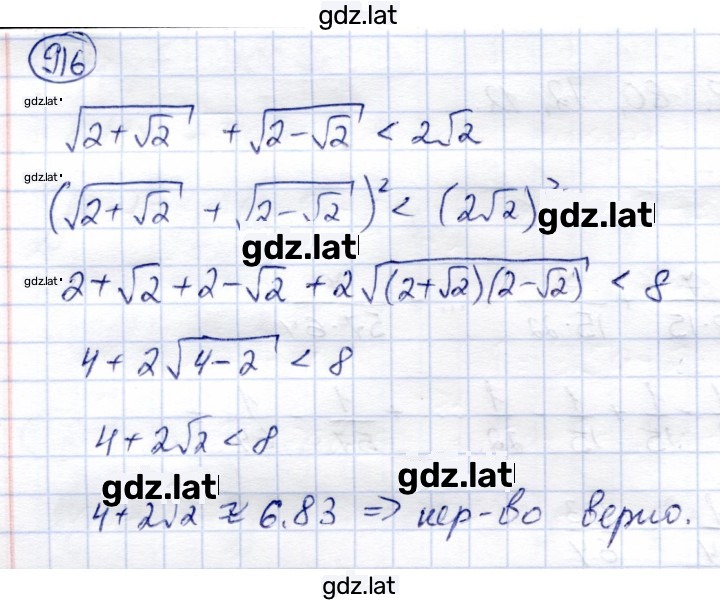 gdz.lat
916
gdz.lat
√(2 + √2) + √(2 - √2) < 2√2
gdz.lat
(√(2 + √2) + √(2 - √2))² < (2√2)²
gdz.lat
gdz.lat
gdz.lat
2 + √2 + 2 - √2 + 2√((2+√2)(2-√2)) < 8
4 + 2√(4-2) < 8
4 + 2√2 < 8
gdz.lat gdz.lat
4 + 2√2 ≈ 6.83 => нер-во верно.
gdz.lat